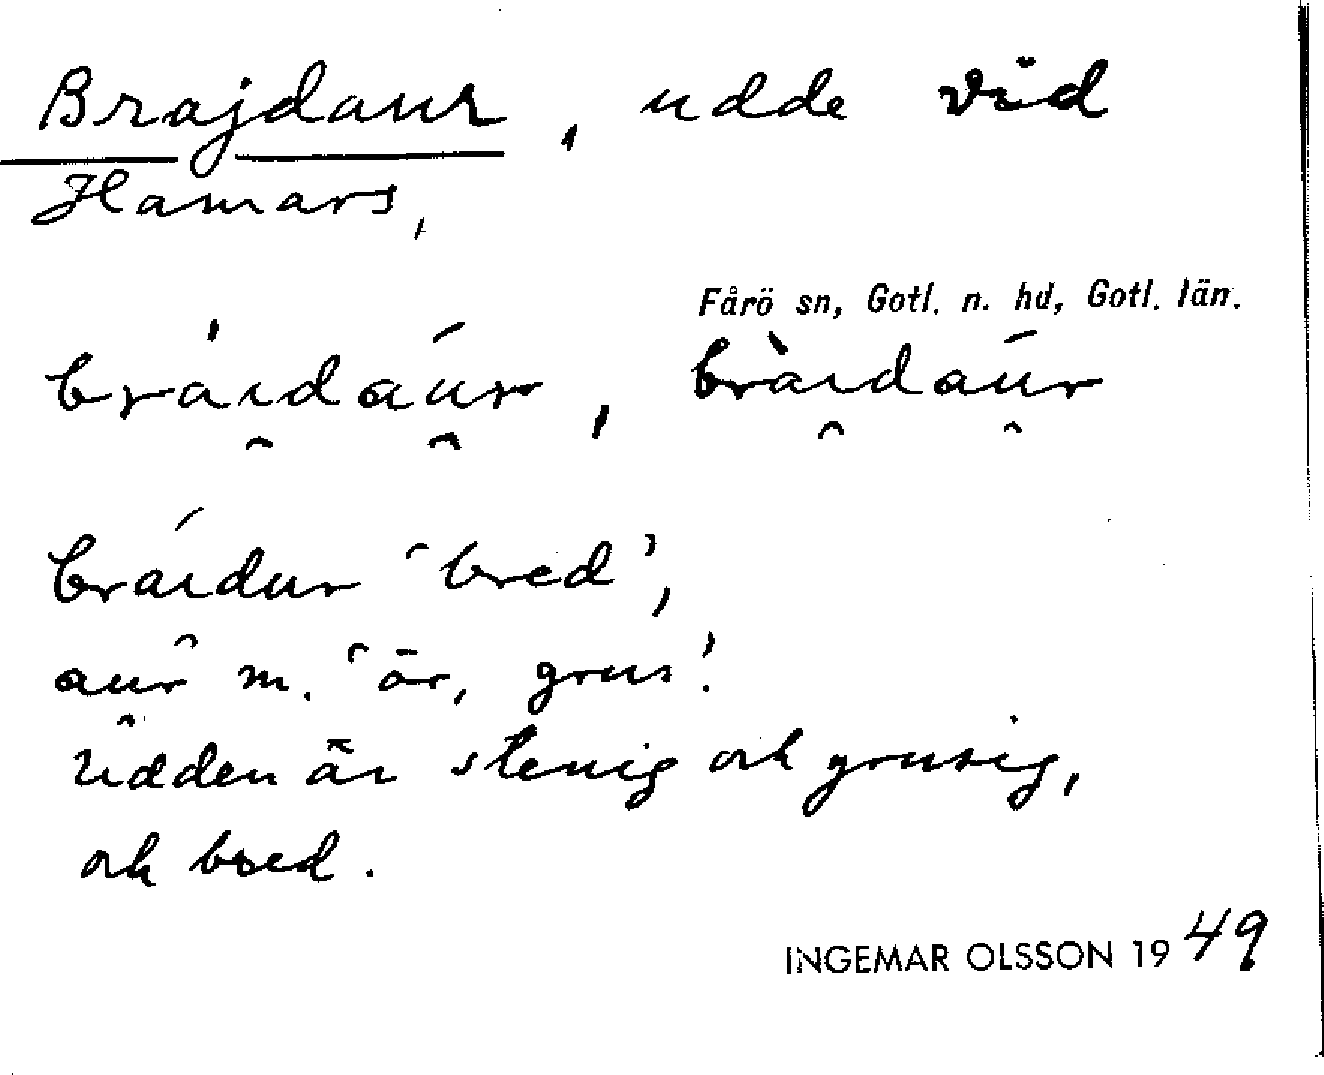 Brajdaur, udde vid
Hamars,
Fårö sn, Gotl. n. hd, Gotl. län.
bráıdáur, bràıdáur
bráıdur 'bred',
aur m. 'ör, grus'.
Udden är stenig och grusig,
och bred.
INGEMAR OLSSON 1949